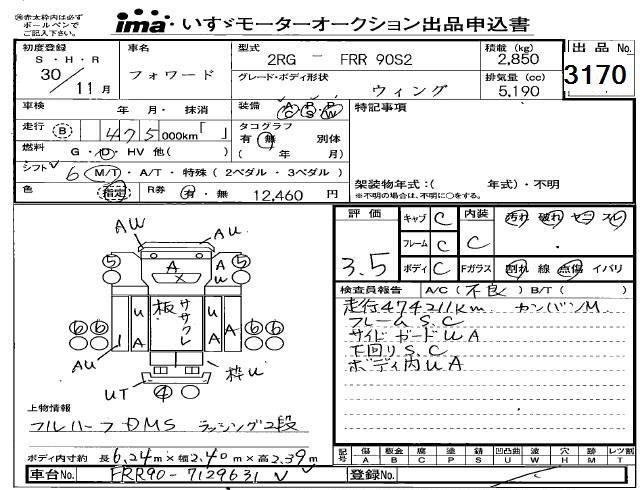 ㊟赤太枠内は必ず
ボールペンで
ご記入下さい。
ima いすゞモーターオークション出品申込書
初度登録
S・H・R
30/11月
車名
フォワード
型式
2RG - FRR 90S2
積載 (kg)
2,850
グレード・ボディ形状
ウィング
排気量 (cc)
5,190
出品No.
3170
車検
年 月・抹消
装備
A/C P/S P/W
特記事項
走行
B 475,000km「 」
タコグラフ
有・無 別体
( 年 月)
燃料
G・D・HV 他( )
シフト
6 M/T・A/T・特殊(2ペダル・3ペダル)
架装物年式:( 年式)・不明
※不明の場合は、不明に○をする。
色
指定
R券
有・無 12,460円
評価
3.5
キャブ C
フレーム C
ボディ C
内装 C
汚れ 破れ
Fガラス 割れ 線 点傷 イパリ
検査員報告 A/C(不良) B/T( )
走行474211km カンバンM
フレームS.C
サイドガードUA
下回りS.C
ボディ内UA
AW
5 A A 5
X U
6 6 U A 板 ササクレ A A 6 6
AU
枠U
UT 4
上物情報
フルハーフ DMS ラッシング2段
ボディ内寸約 長6.24m×幅2.40m×高2.39m
記号 傷A 板金B 腐C 塗P 錆S 凹凸曲U 波W 穴H 跡M レツ割T
車台No. FRR90-7129631
登録No.